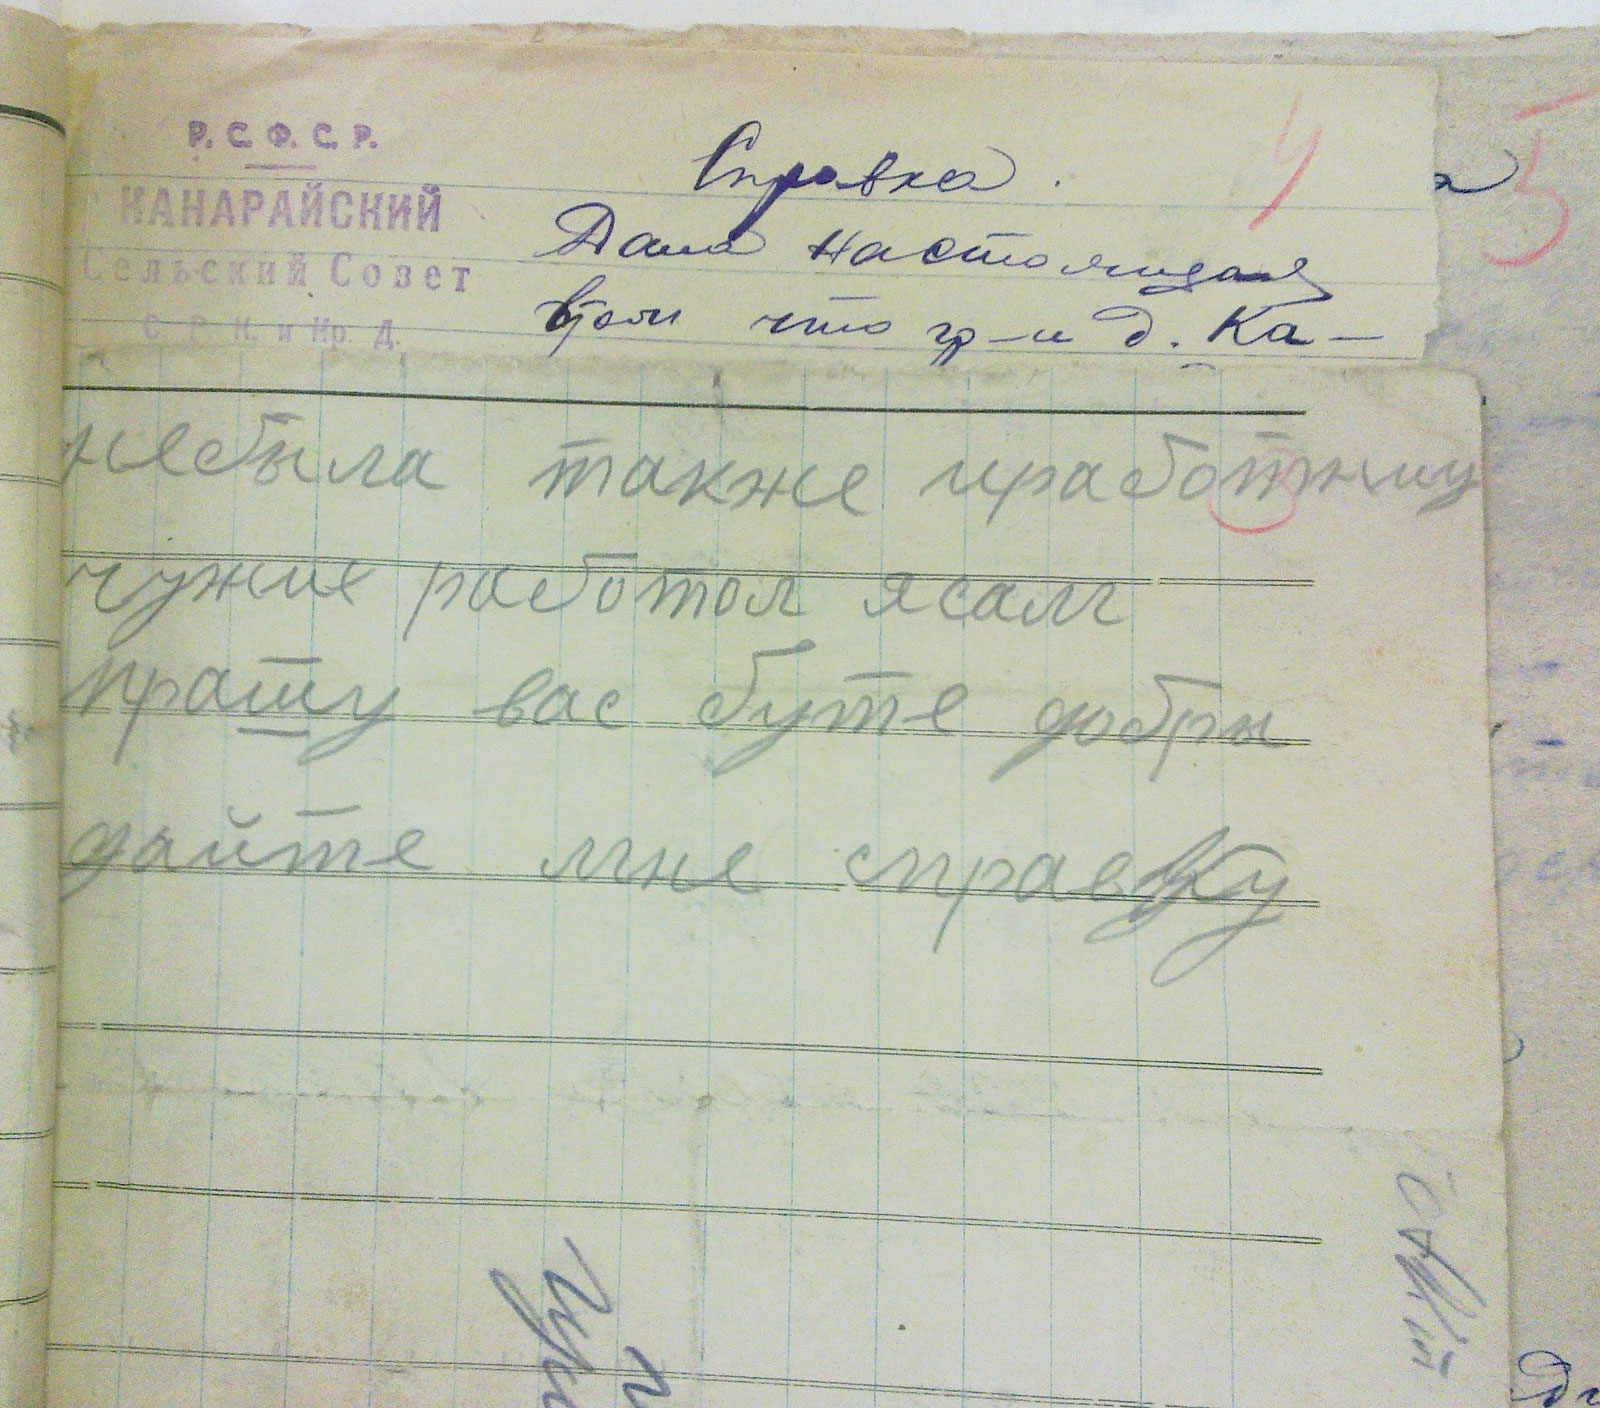 Р. С. Ф. С. Р.
КАНАРАЙСКИЙ
Сельский Совет
С. Р. К. и Кр. Д.
Справка.
Дана настоящая
втом что гр-и д. Ка-
4
5
3
небыла также иработниц
чужие работол ясам
прашу вас буте добры
дайте мне справку